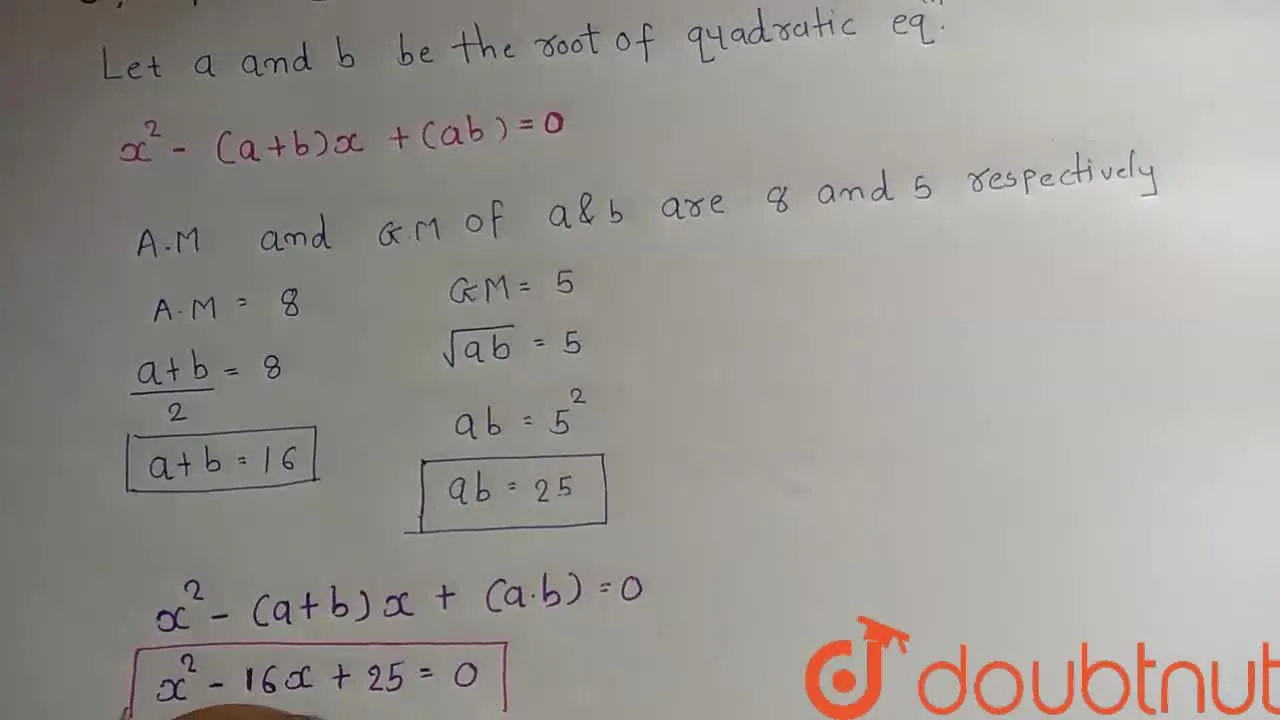 Let a and b be the root of quadratic eqⁿ.
x² - (a+b)x + (ab) = 0
A.M and G.M of a & b are 8 and 5 respectively
A.M = 8
GM = 5
a+b/2 = 8
√ab = 5
ab = 5²
a+b = 16
ab = 25
x² - (a+b)x + (a.b) = 0
x² - 16x + 25 = 0
doubtnut